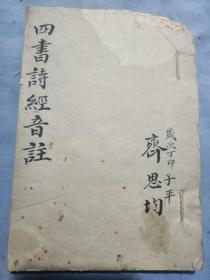 四書詩經音註
歲次丁卯子平
齊思均